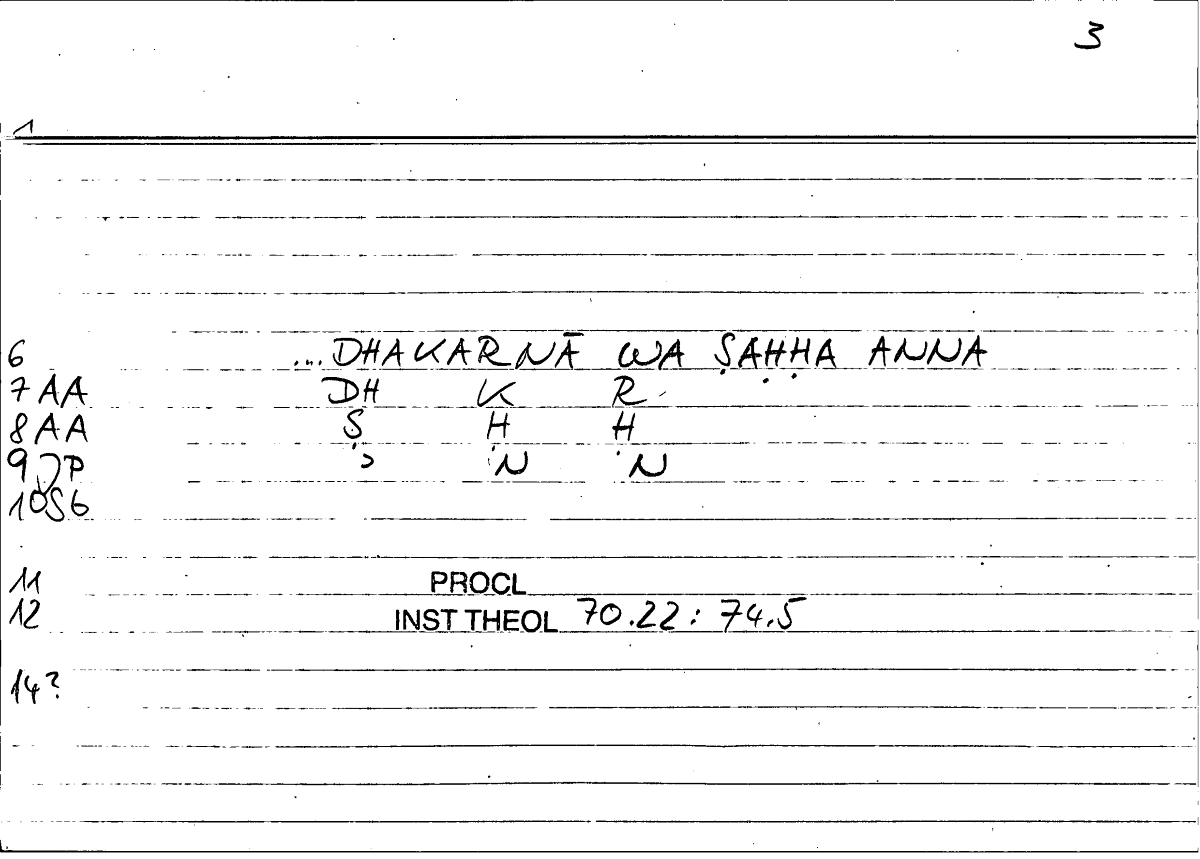 3
1
6 ... DHAKARNĀ WA ṢAḤḤA ANNA
7 AA DH K R
8 AA Ṣ Ḥ Ḥ
9 JP ʾ N N
10 S6
11 PROCL
12 INST THEOL 70.22 : 74.5
14?